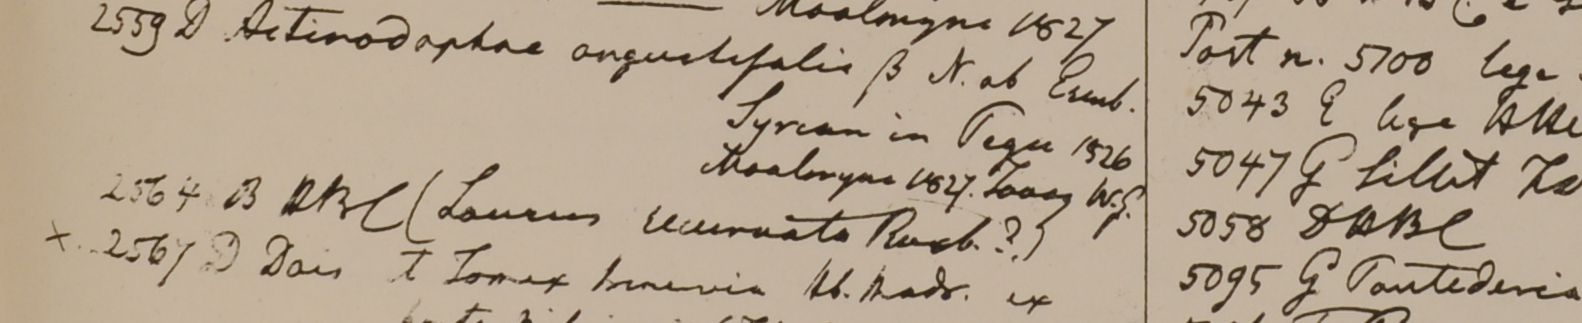 Moalmyne 1827
2559 D Actinodaphne angustifolia β N. ab Esenb.
Syrian in Pegu 1826
Moalmyne 1827. Tavoy W.G.
2564 B HBC (Laurus recurvata Roxb.?)
x. 2567 D Dois t Tomex Hb. Madr. ex
Post n. 5700 lege
5043 E lege
5047 G Sillet
5058 D HBC
5095 G Pontederia